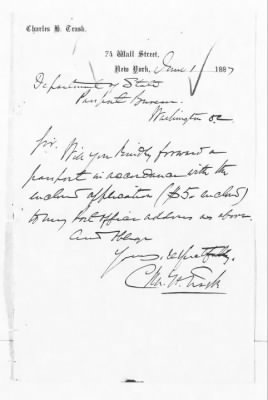 Charles H. Trask.
74 Wall Street,
New York, June 1 1887
Department of State
Passport Bureau
Washington DC
Sir. Will you kindly forward a
passport in accordance with the
enclosed application ($5. enclosed)
to my Post Office address as above
and oblige
Yours, respectfully.
Chas. H. Trask